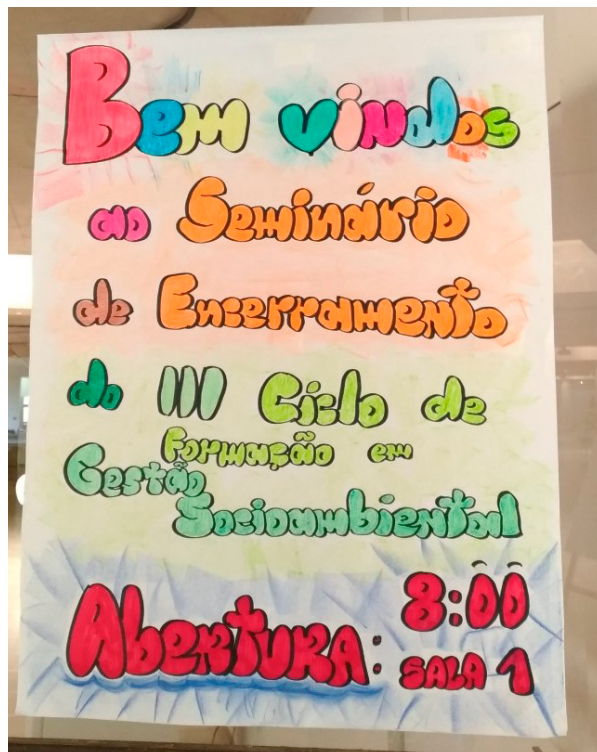 Bem vindos
ao Seminário
de Encerramento
do III Ciclo de
Formação em
Gestão
Socioambiental
Abertura: 8:00
SALA 1